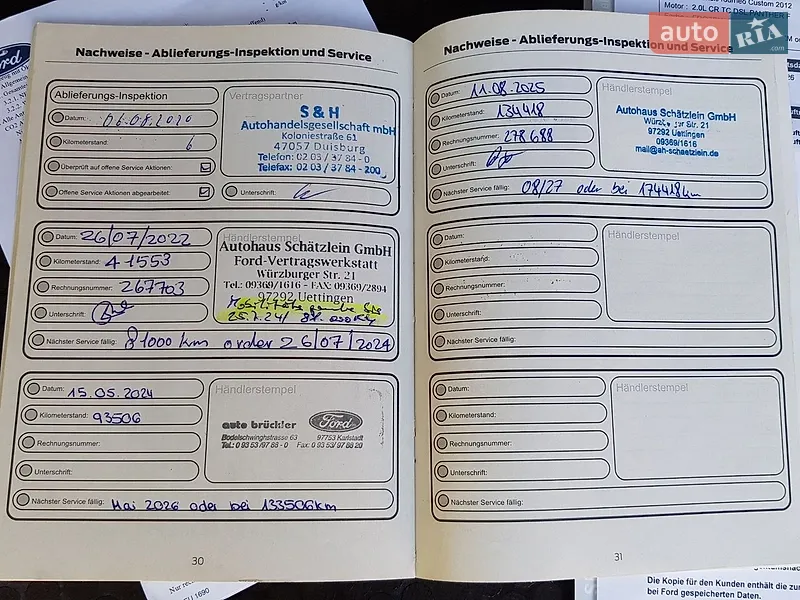 Nachweise - Ablieferungs-Inspektion und Service
Ablieferungs-Inspektion
Datum: 06.08.2020
Kilometerstand: 6
Überprüft auf offene Service Aktionen:
Offene Service Aktionen abgearbeitet:
Vertragspartner
S & H
Autohandelsgesellschaft mbH
Koloniestraße 61
47057 Duisburg
Telefon: 02 03 / 37 84 - 0
Telefax: 02 03 / 37 84 - 200
Unterschrift:
Datum: 26/07/2022
Kilometerstand: 41553
Rechnungsnummer: 267703
Unterschrift:
Händlerstempel
Autohaus Schätzlein GmbH
Ford-Vertragswerkstatt
Würzburger Str. 21
Tel.: 09369/1616 - FAX: 09369/2894
97292 Uettingen
Nächster Service fällig: 81000 km order 26/07/2024
Datum: 15.05.2024
Kilometerstand: 93506
Rechnungsnummer:
Unterschrift:
Händlerstempel
auto brückler
Ford
Bodelschwinghstrasse 63 97753 Karlstadt
Tel.: 0 93 53 /97 88 - 0 Fax: 0 93 53/ 97 88 20
Nächster Service fällig: Mai 2026 oder bei 133506km
30
Nachweise - Ablieferungs-Inspektion und Service
Datum: 11.08.2025
Kilometerstand: 134418
Rechnungsnummer: 278688
Unterschrift:
Händlerstempel
Autohaus Schätzlein GmbH
Würzburger Str. 21
97292 Uettingen
09369/1616
mail@ah-schaetzlein.de
Nächster Service fällig: 08/27 oder bei 174418km
Datum:
Kilometerstand:
Rechnungsnummer:
Unterschrift:
Händlerstempel
Nächster Service fällig:
Datum:
Kilometerstand:
Rechnungsnummer:
Unterschrift:
Händlerstempel
Nächster Service fällig:
31
Tourneo Custom 2012
Motor : 2.0L CR TC DSL PANTHER F
auto RIA .com
Die Kopie für den Kunden enthält die zum
bei Ford gespeicherten Daten.